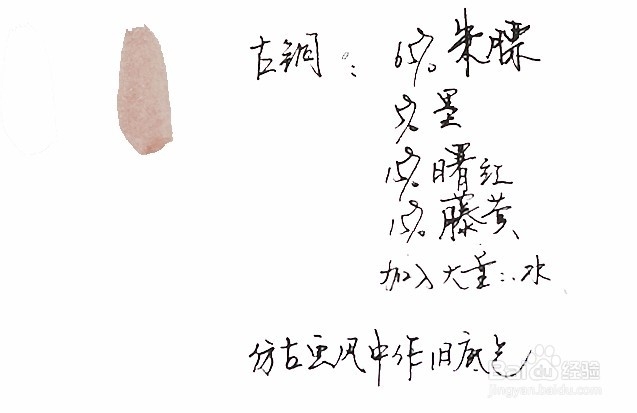 古铜： 65% 朱膘
5% 墨
15% 曙红
15% 藤黄
加入大量水
仿古画风中作旧底色
Baidu 经验
jingyan.baidu.com